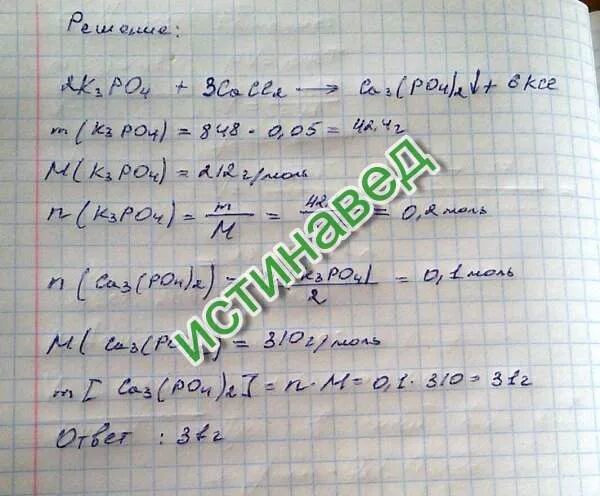 Решение:
2K3PO4 + 3CaCl2 → Ca3(PO4)2↓ + 6KCl
m(K3PO4) = 848 · 0,05 = 42,4г
M(K3PO4) = 212г/моль
n(K3PO4) = m/M = 42 = 0,2 моль
n(Ca3(PO4)2) = K3PO4)/2 = 0,1 моль
M(Ca3(PO = 310г/моль
m[Ca3(PO4)2] = n·M = 0,1·310 = 31г
Ответ: 31г
истинавед